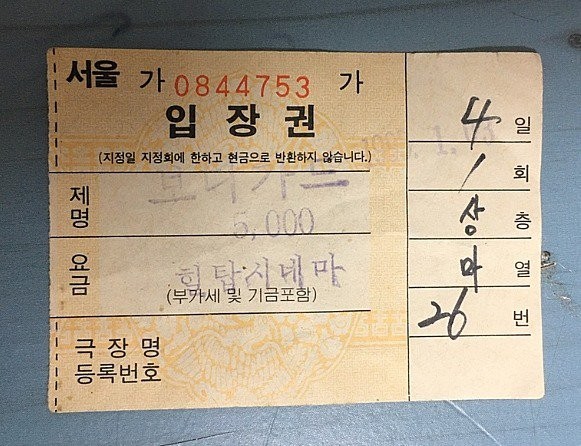 서울 가 0844753 가
입장권
(지정일 지정회에 한하고 현금으로 반환하지 않습니다.)
제명 보디가드
5,000
요금 힐탑시네마
(부가세 및 기금포함)
극장명
등록번호
4 일
1 회
상 층
마 열
26 번